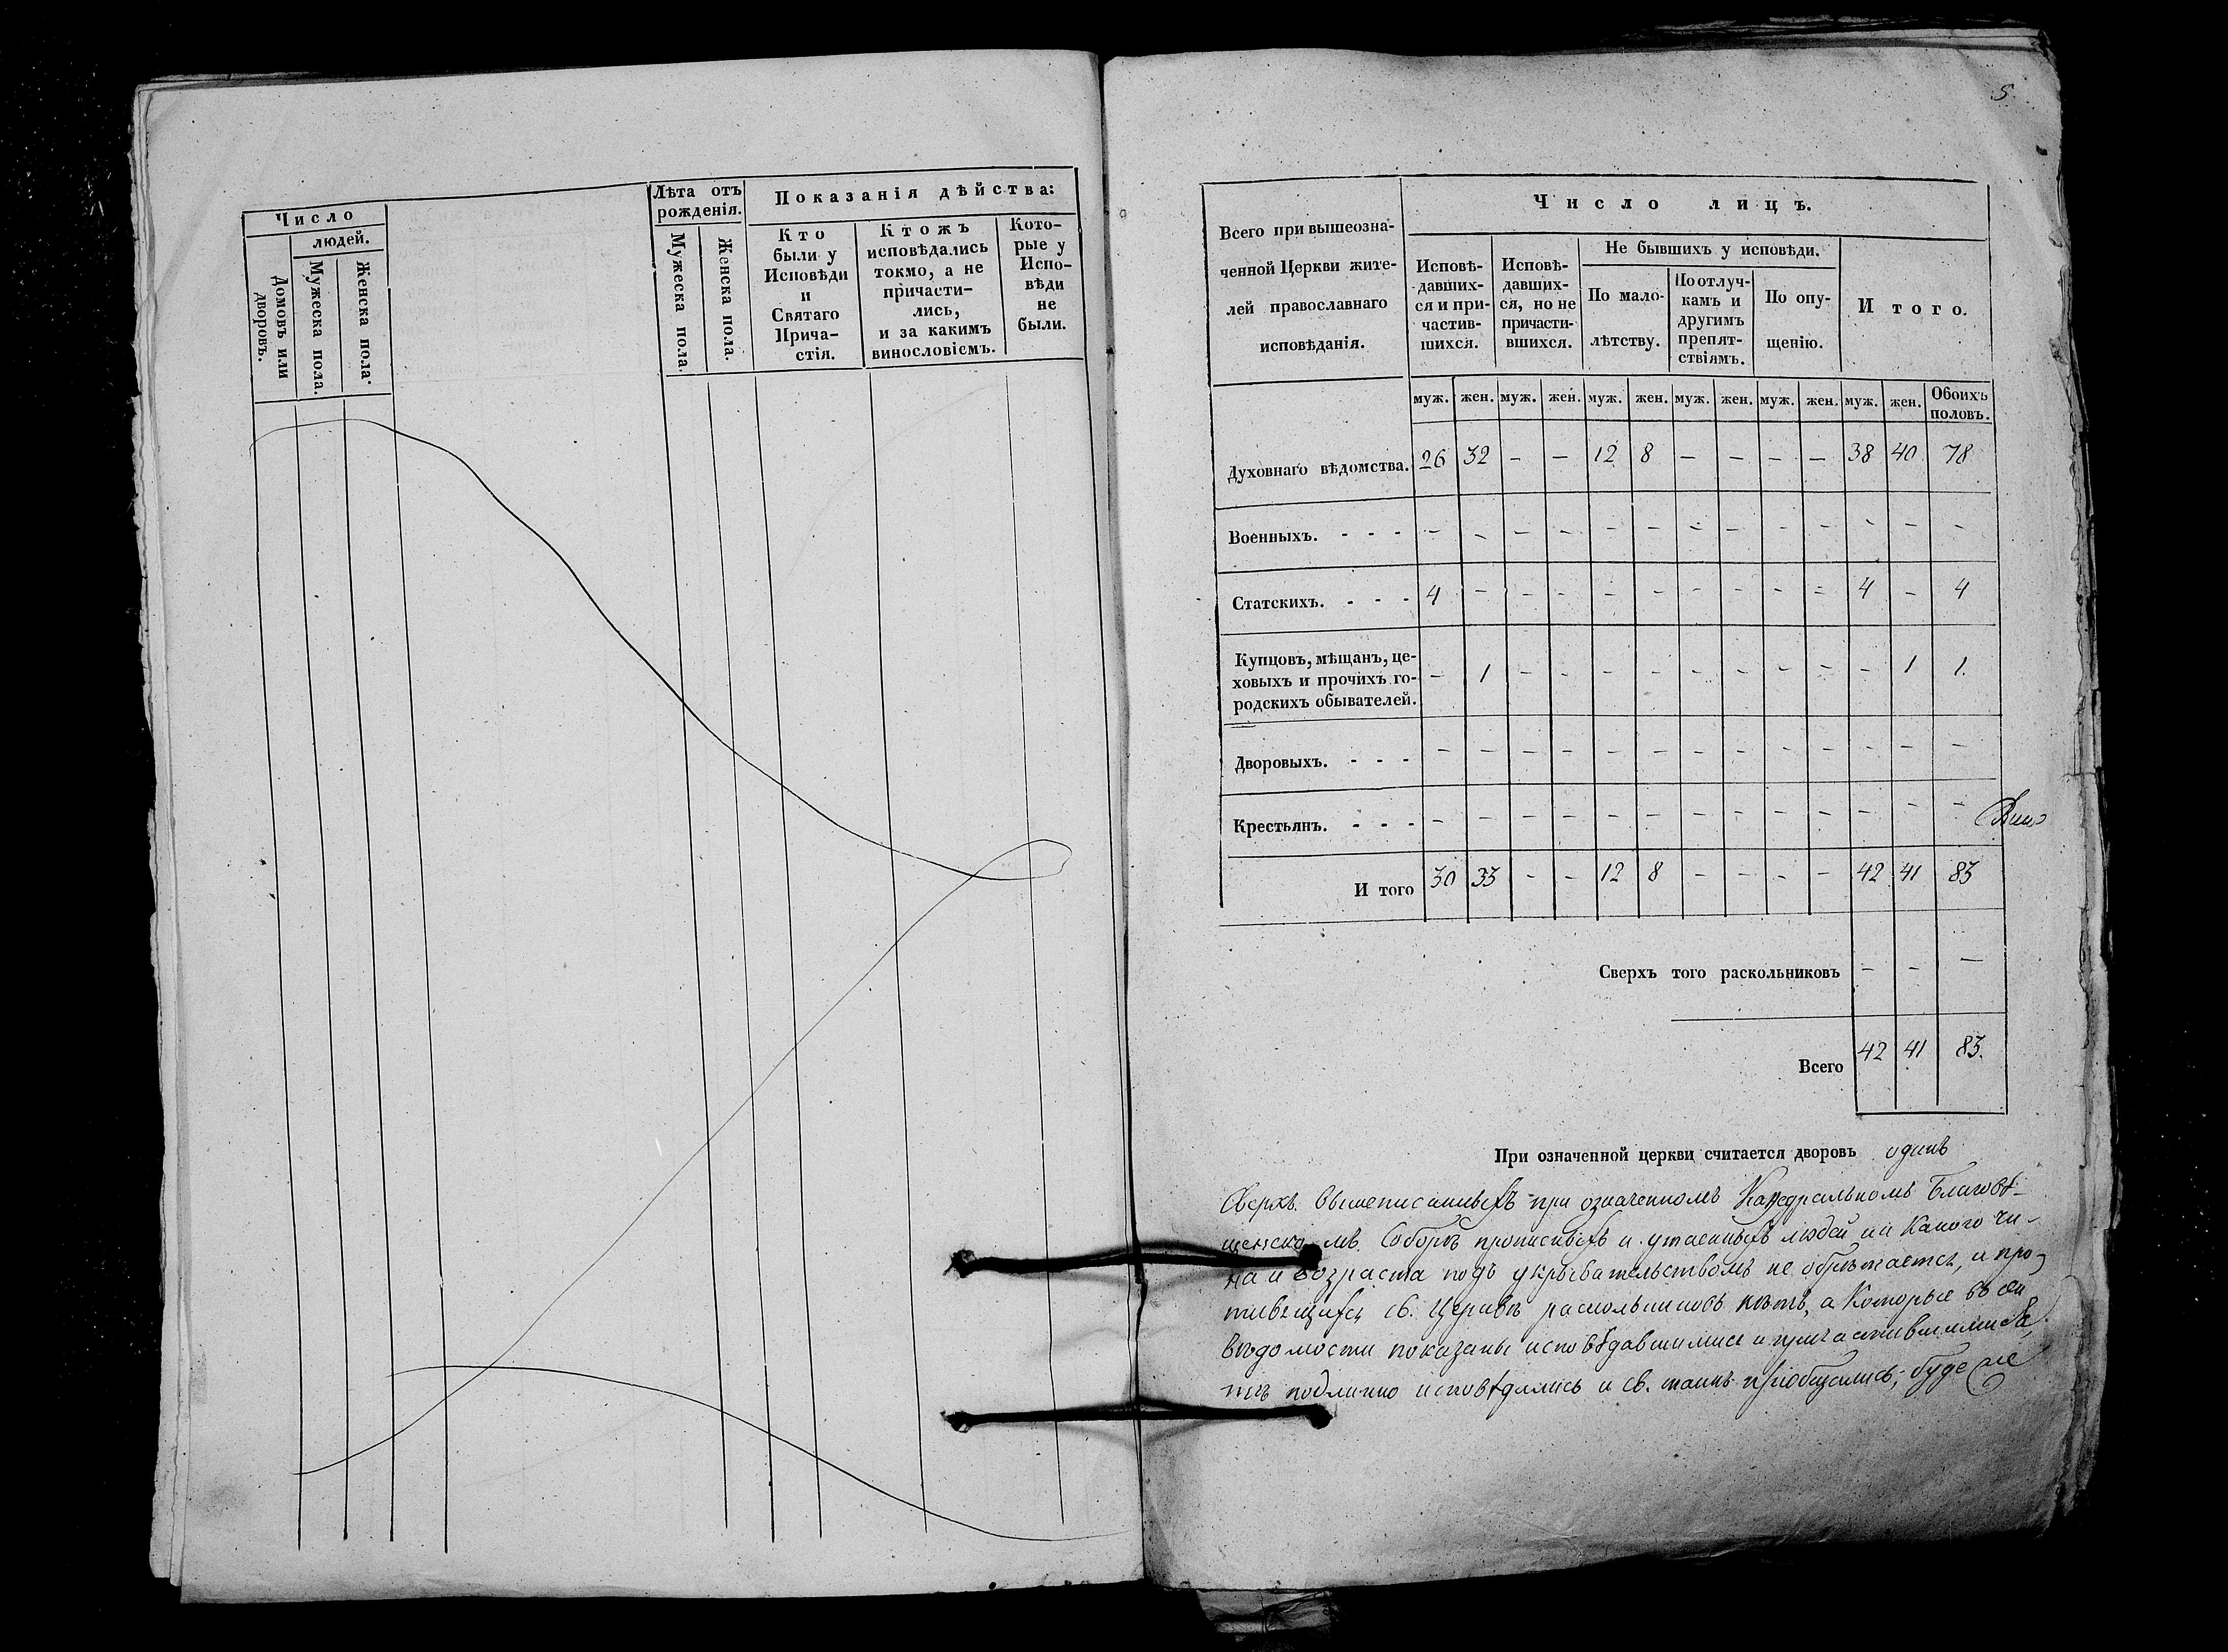 Число
людей.
Домовъ или дворовъ.
Мужеска пола.
Женска пола.
Лѣта отъ
рожденія.
Мужеска пола.
Женска пола.
Показанія дѣйства:
Кто
были у
Исповѣди
и
Святаго
Прича-
стія.
Ктожъ
исповѣдались
токмо, а не
причасти-
лись,
и за какимъ
винословіемъ.
Кото-
рые у
Испо-
вѣди
не
были.
5.
Всего при вышеозна-
ченной Церкви жите-
лей православнаго
исповѣданія.
Число лицъ.
Исповѣ-
давших-
ся и при-
частив-
шихся.
Исповѣ-
давших-
ся, но не
причасти-
вшихся.
Не бывшихъ у исповѣди.
По мало-
лѣтству.
По отлуч-
камъ и
другимъ
препят-
ствіямъ.
По опу-
щенію.
Итого.
муж. жен. муж. жен. муж. жен. муж. жен. муж. жен. муж. жен. Обоихъ половъ.
Духовнаго вѣдомства. 26 32 – – 12 8 – – – – 38 40 78
Военныхъ. - - - – – – – – – – – – – – – –
Статскихъ. - - - 4 – – – – – – – – – 4 – 4
Купцовъ, мѣщанъ, це-
ховыхъ и прочихъ го-
родскихъ обывателей. – 1 – – – – – – – – – 1 1.
Дворовыхъ. - - - – – – – – – – – – – – – –
Крестьянъ. - - - – – – – – – – – – – – – –
И того 30 33 – – 12 8 – – – – 42 41 83
Сверхъ того раскольниковъ – – –
Всего 42 41 83.
При означенной церкви считается дворовъ одинъ
Сверхъ вышеписанныхъ при означенномъ Каѳедральномъ Благовѣ-
щенскомъ Соборѣ прописныхъ и утаенныхъ людей ни какого чи-
на и возраста подъ укрывательствомъ не обрѣтается, и про-
тивящихся св. Церкви раскольниковъ нѣтъ, а которые въ сей
вѣдомости показаны исповѣдавшимися и причастившимися,
тѣ подлинно исповѣдались и св. таинъ пріобщались; буде же